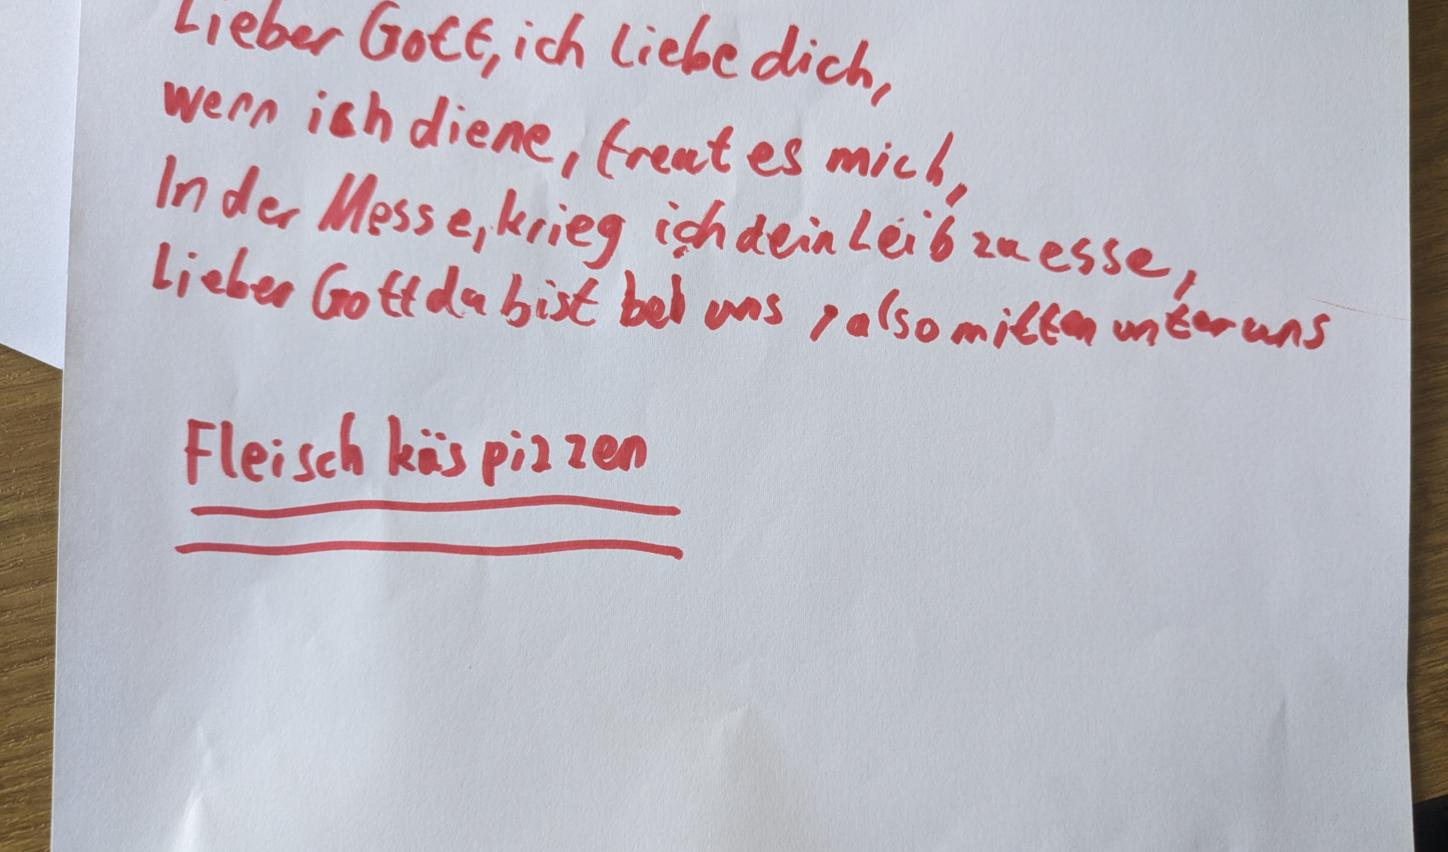 Lieber Gott, ich liebe dich,
wenn ich diene, freut es mich,
In der Messe, krieg ich dein Leib zu esse,
Lieber Gott du bist bei uns, also mitten unter uns
Fleisch käs pizzen